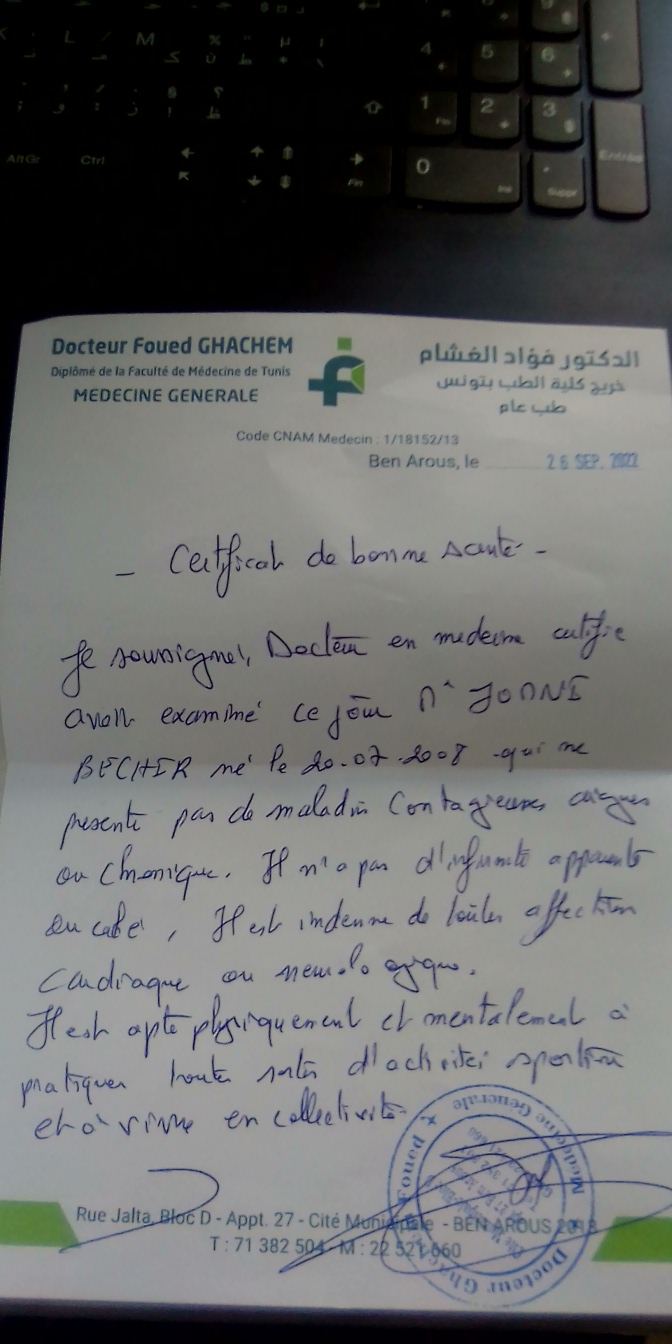 Docteur Foued GHACHEM
Diplômé de la Faculté de Médecine de Tunis
MEDECINE GENERALE
الدكتور فؤاد الغشام
خريج كلية الطب بتونس
طب عام
Code CNAM Medecin : 1/18152/13
Ben Arous, le 26 SEP. 2022
- Certificat de bonne santé -
Je soussigné, Docteur en medecine certifie
avoir examiné ce jour Mr JOUNI
BECHIR né le 20.07.2008 qui ne
presente pas de maladies Contagieuses aigues
ou chronique. Il n'a pas d'infirmité apparente
ou caché, Il est indemne de toutes affection
Cardiaque ou
Il est apte physiquement et mentalement à
pratiquer toute sortes d'activités sportive
et à vivre en collectivité.
Rue Jalta, Bloc D - Appt. 27 - Cité Municipale - BEN AROUS 2013
T : 71 382 504 - M : 22 521 660
Docteur Ghachem Foued
Medecine Générale
4
5
6
1
2
3
0
Ins
Suppr
Entrée
Fin
AltGr
Ctrl
L
M